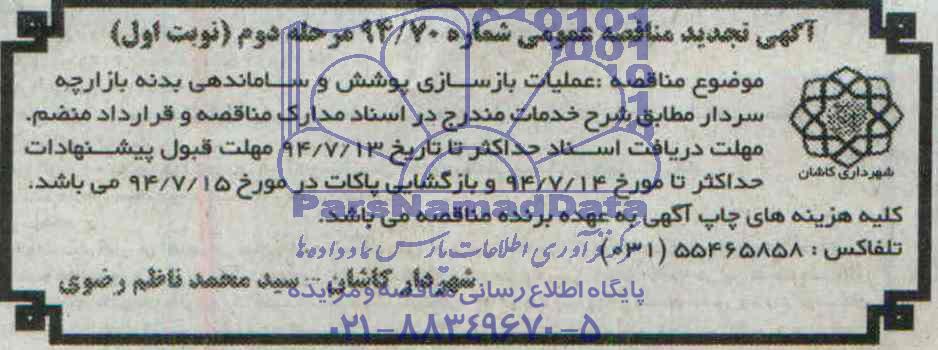 آگهی تجدید مناقصه عمومی شماره ۹۴/۷۰ مرحله دوم (نوبت اول)
موضوع مناقصه :عملیات بازسازی پوشش و ساماندهی بدنه بازارچه
سردار مطابق شرح خدمات مندرج در اسناد مدارک مناقصه و قرارداد منضم.
مهلت دریافت اسناد حداکثر تا تاریخ ۹۴/۷/۱۳ مهلت قبول پیشنهادات
حداکثر تا مورخ ۹۴/۷/۱۴ و بازگشایی پاکات در مورخ ۹۴/۷/۱۵ می باشد.
شهرداری کاشان
کلیه هزینه های چاپ آگهی به عهده برنده مناقصه می باشد.
تلفاکس : ۵۵۴۶۵۸۵۸ (۰۳۱)
شهردار کاشان - سید محمد ناظم رضوی
ParsNamadData
مرکز فرآوری اطلاعات پارس نماد داده ها
پایگاه اطلاع رسانی مناقصه و مزایده
۰۲۱-۸۸۳۴۹۶۷۰-۵